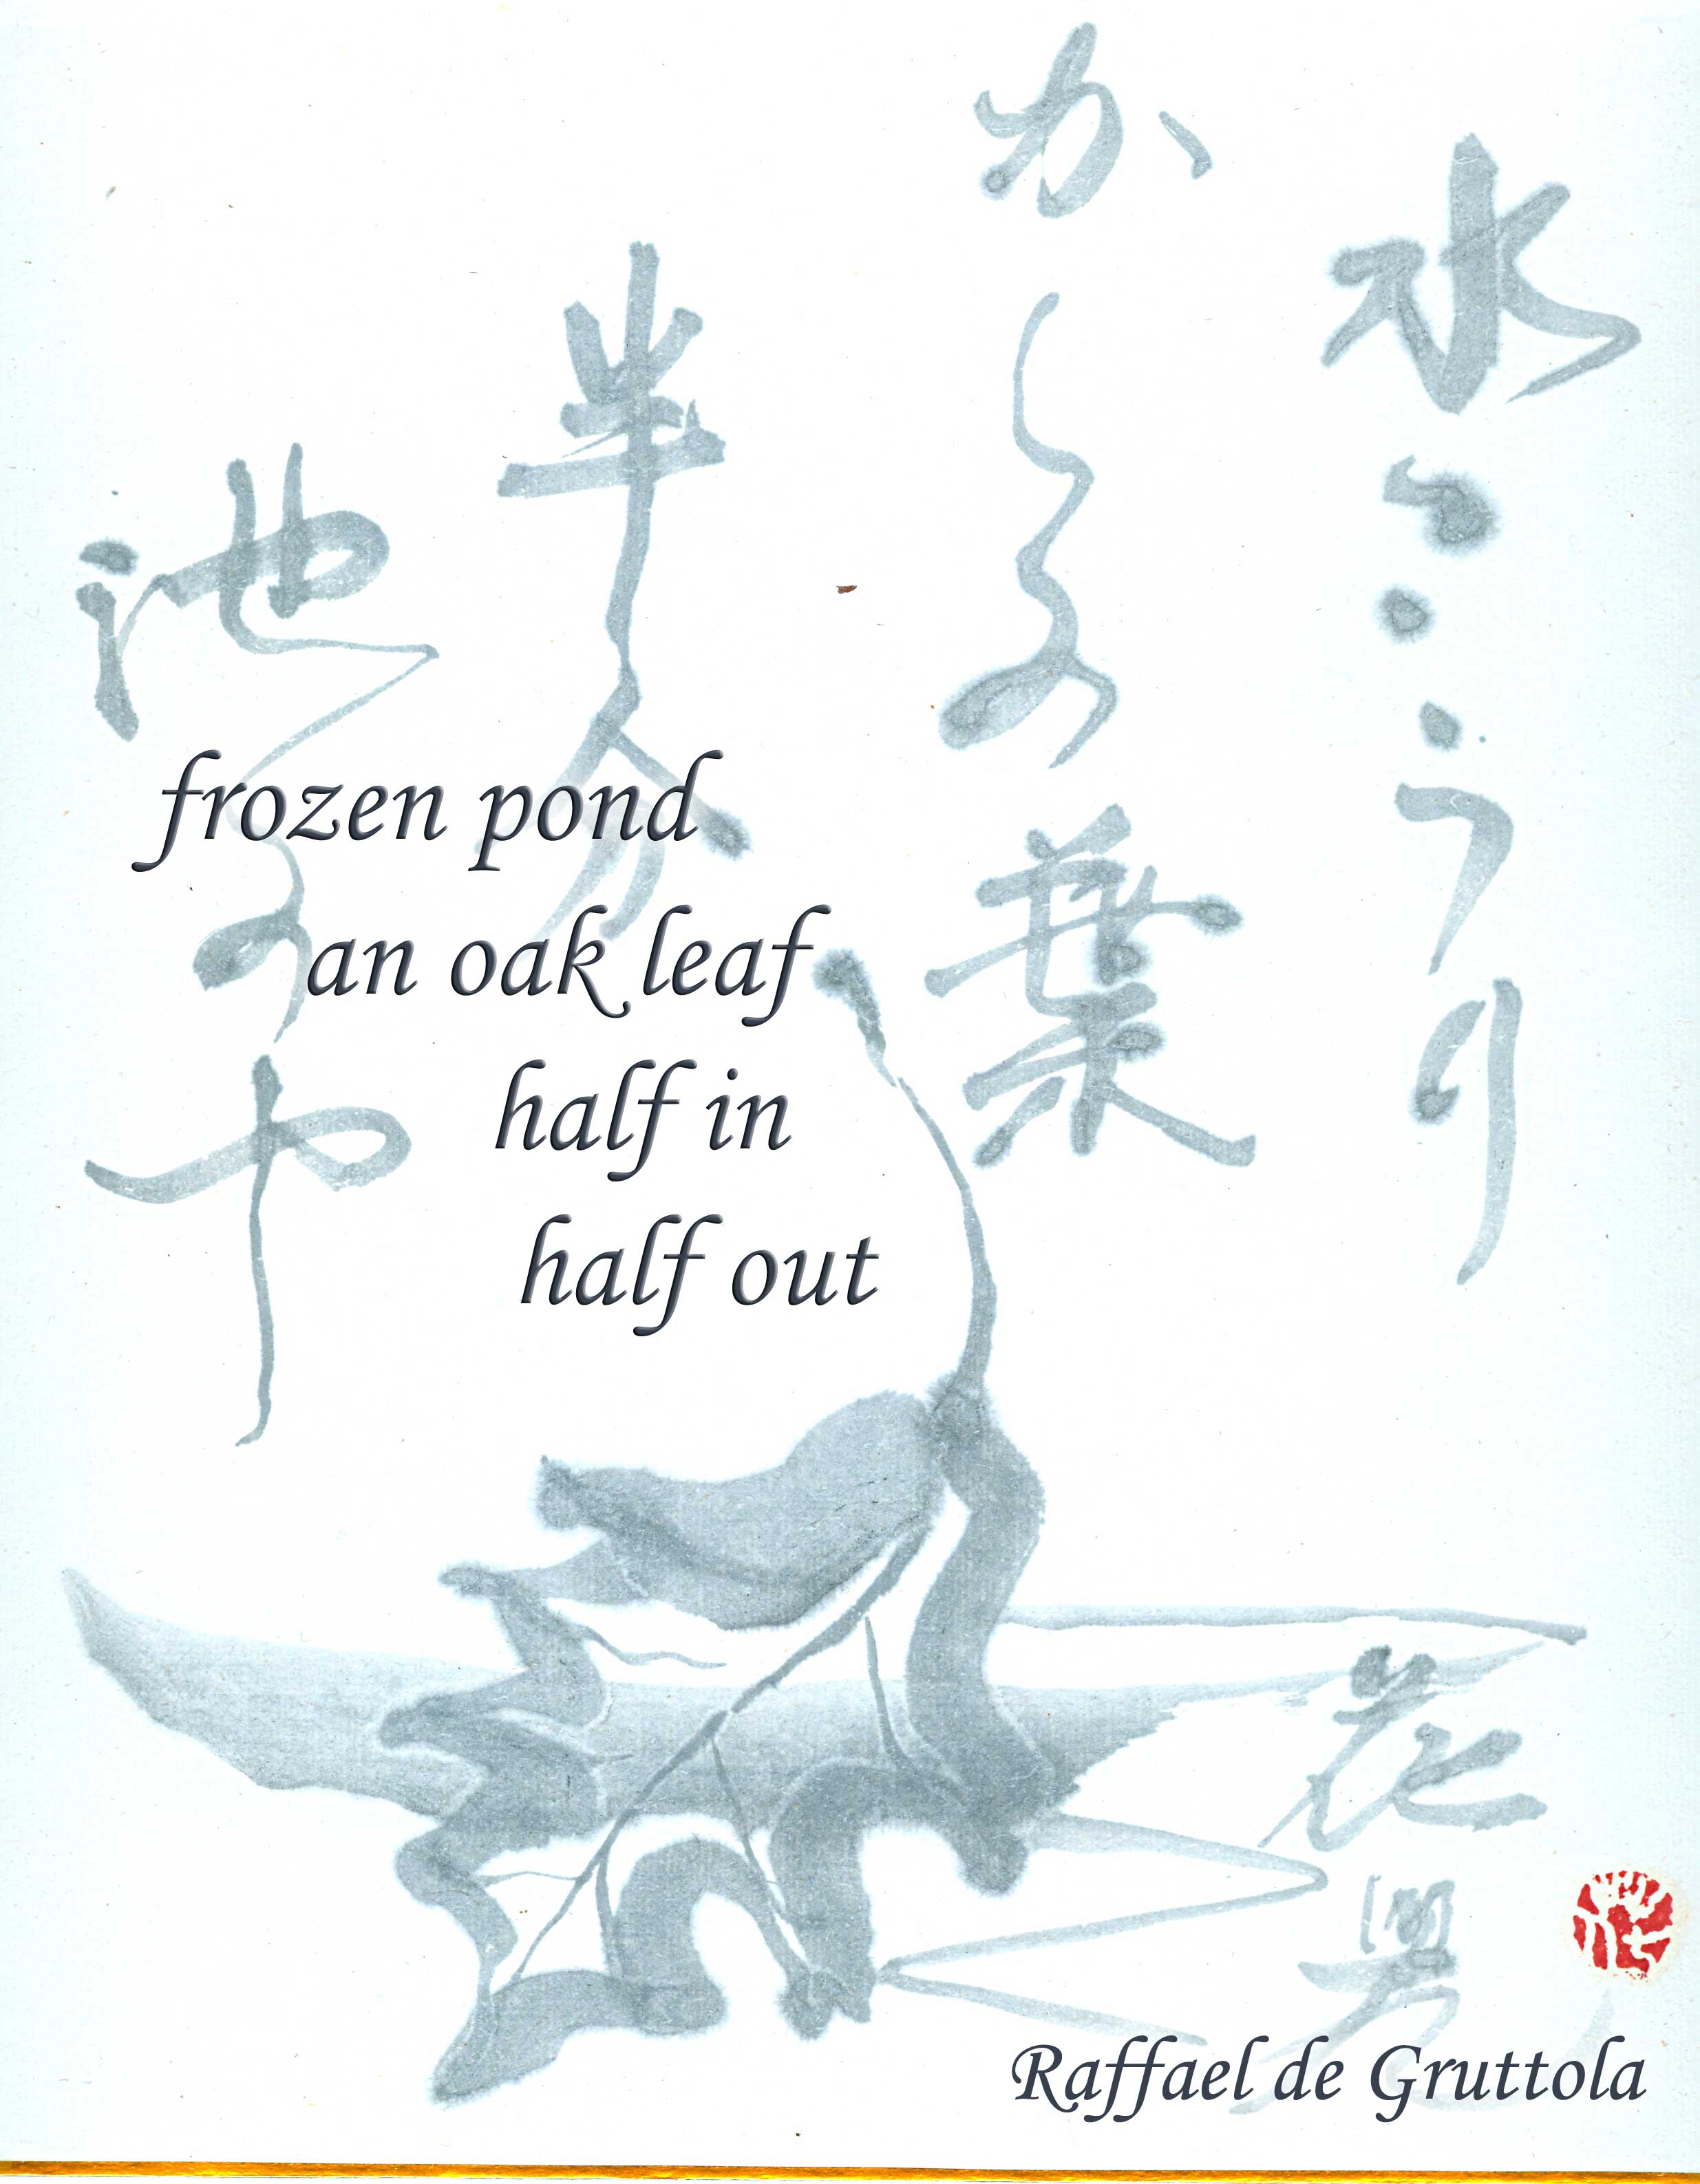 水こうり
かしの葉
半分
池のや
frozen pond
an oak leaf
half in
half out
花
Raffael de Gruttola